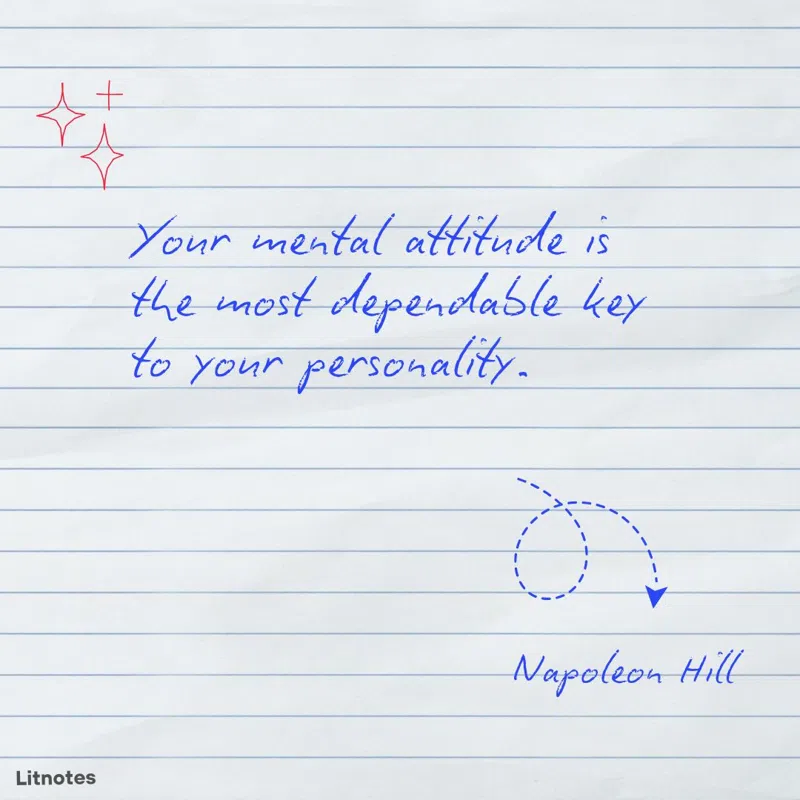 Your mental attitude is
the most dependable key
to your personality.
Napoleon Hill
Litnotes